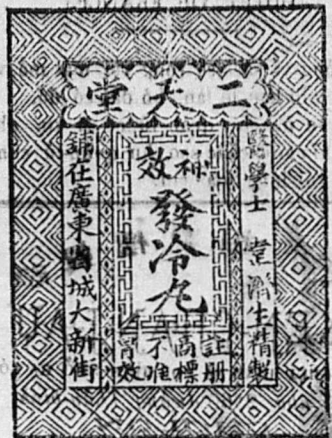 二天堂
醫學士 韋 生精製
神效
發冷丸
註冊
商標
不准
冒效
鋪在廣東省城大新街